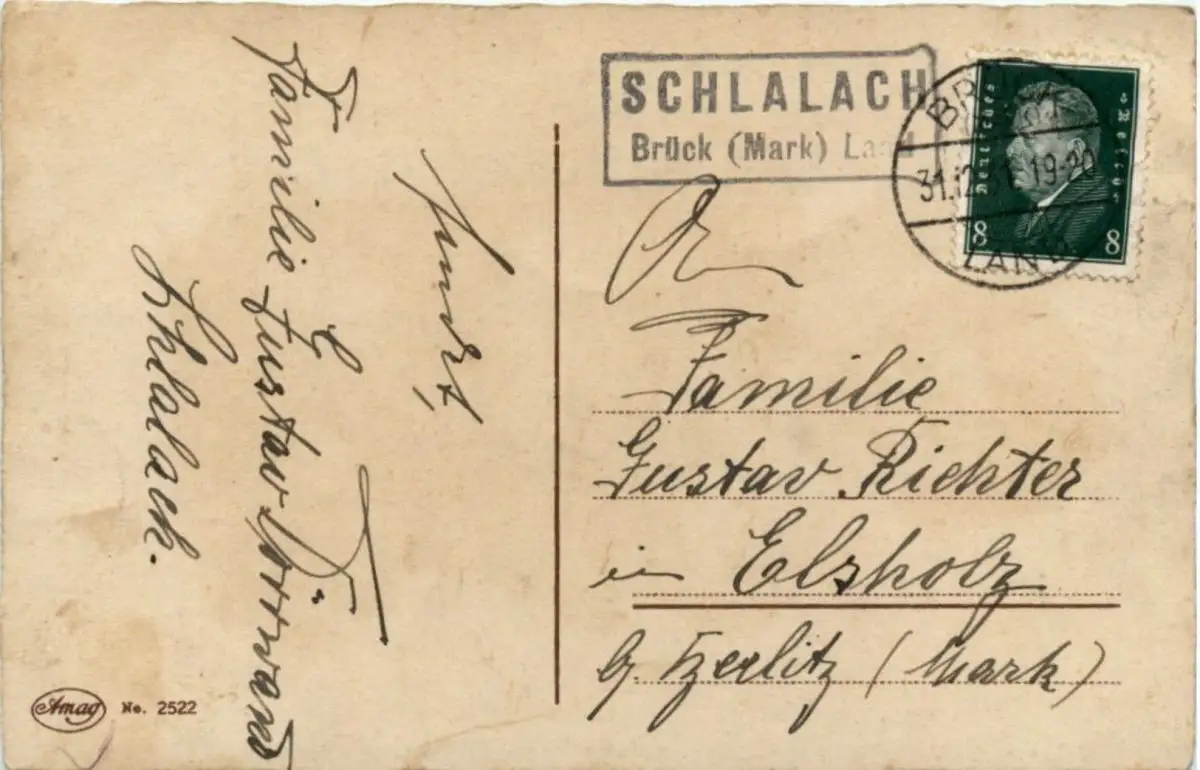 SCHLALACH
Brück (Mark) Land
BRÜCK
31.12.31.19-20
LAND
Deutsches Reich
8 8
An
Familie
Gustav Richter
in Elsholz
b. Beelitz (Mark)
Familie Gustav
Schlalach.
Amag No. 2522